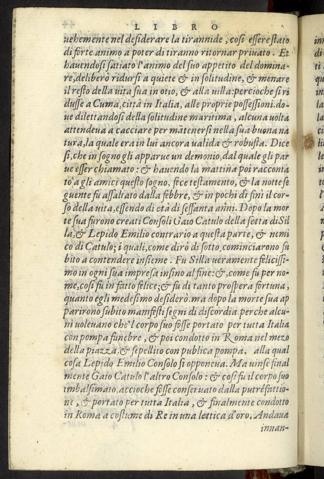 LIBRO
vehemente nel desiderare la tirannide, cosi essere stato
di forte animo a poter di tiranno ritornar priuato. Et
hauendosi satiato l'animo del suo appetito del domina-
re, deliberò ridursi a quiete & in solitudine, & menare
il resto della vita sua in otio, & alla uilla: percioche si ri
dusse a Cuma, città in Italia, alle proprie possessioni. do-
ue dilettandosi della solitudine maritima, alcuna uolta
attendeua a cacciare per mātenersi nella sua buona na
tura, la quale era in lui ancora ualida & robusta. Dice
si, che in sogno gli apparue un demonio, dal quale gli par
ue esser chiamato: & hauendo la mattina poi racconta
to a gli amici questo sogno, fece testamento, & la notte se
guente fu assaltato dalla febbre, & in pochi dì finì il cor-
so della vita, essendo di età di sessanta anni. Dopo la mor
te sua furono creati Consoli Gaio Catulo della setta di Sil
la, & Lepido Emilio contrario a questa parte, & nemi
co di Catulo; i quali, come dirò di sotto, cominciarono su
bito a contendere insieme. Fu Silla ueramente felicissi-
mo in ogni sua impresa insino al fine: &, come fu per no-
me, cosi fu in fatto felice; & fu di tanto prospera fortuna,
quanto egli medesimo desiderò. ma dopo la morte sua ap
parirono subito manifesti segni di discordia perche alcu-
ni uoleuano che'l corpo suo fosse portato per tutta Italia
con pompa funebre, & poi condotto in Roma nel mezo
della piazza & sepellito con publica pompa. alla qual
cosa Lepido Emilio Consolo si opponeua. Ma uinse final
mente Gaio Catulo l'altro Consolo: & cosi fu il corpo suo
imbalsimato, accioche fosse conseruato dalla putrefattio-
ne, & portato per tutta Italia, & finalmente condotto
in Roma a costume di Re in una lettica d'oro. Andaua
innan-